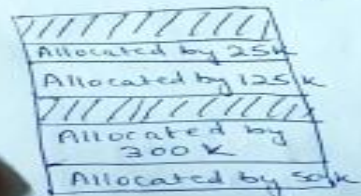 Allocated by 25K
Allocated by 125K
Allocated by
300 K
Allocated by 50K